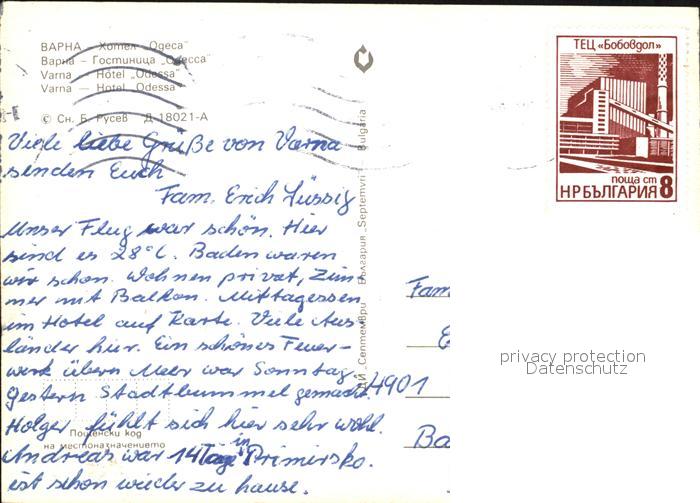 ВАРНА — Хотел "Одеса"
Варна — Гостиница "Одесса"
Varna — Hôtel "Odessa"
Varna — Hotel "Odessa"
© Сн. Б. Русев Д 18021-А
Viele liebe Grüße von Varna
senden Euch
Fam. Erich Züssig
Unser Flug war schön. Hier
sind es 28°C. Baden waren
wir schon. Wohnen privat, Zim-
mer mit Balkon. Mittagessen
im Hotel auf Karte. Viele Aus-
länder hier. Ein schönes Feuer-
werk übern Meer war Sonntag.
Gestern Stadtbummel gemacht.
Holger fühlt sich hier sehr wohl.
Andreas war 14 Tage in Primirsko.
ist schon wieder zu hause.
Пощенски код
на местоназначението
ДИ „Септември" България „Septemvri" Bulgaria
ТЕЦ «Бобовдол»
поща ст 8
НРБЪЛГАРИЯ
Fam
4901
Ba
privacy protection
Datenschutz